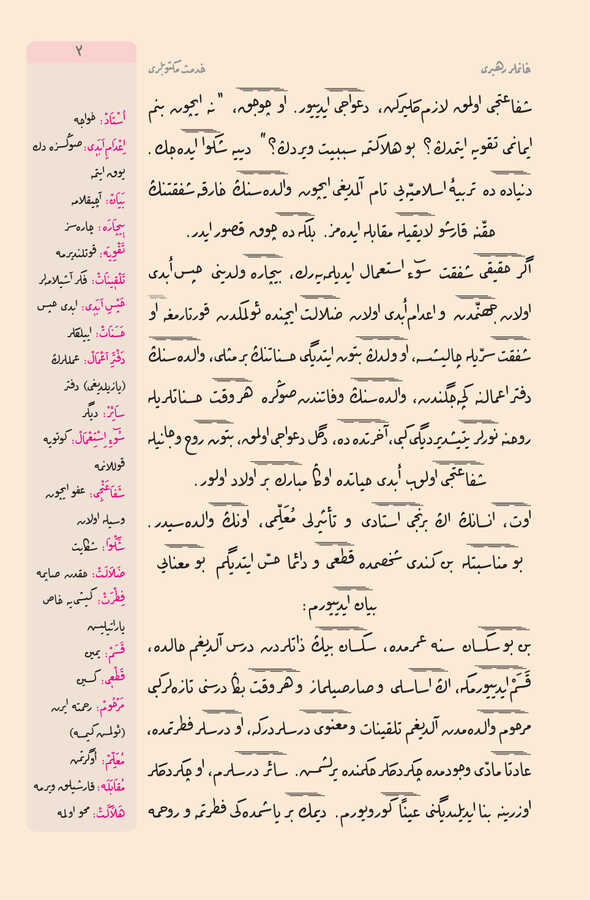 خانملر رهبری
خدمت مکتوبلری
٢
شفاعتجی اولمق لازم کلیرکن، دعواجی ایدییور. او چوجق، “نه ایچون بنم
ایمانمی تقویه ایتمدڭ؟ بو هلاکتمه سببیت ویردڭ؟” دییه شکوا ایده‌جك.
دنیاده ده تربیهٔ اسلامیه‌یی تام آلمدیغی ایچون والده‌سنڭ خارقه شفقتنڭ
حقّنه قارشو لایقیله مقابله ایده‌مز. بلکه ده چوق قصور ایدر.
اگر حقیقی شفقت سوٓء استعمال ایدیلمه‌یه‌رك، بیچاره ولدینی حبس أبدی
اولان جهنّمدن و اعدام أبدی اولان ضلالت ایچنده ئولمکدن قورتارمغه او
شفقت سرّیله چالیشسه، او ولدڭ بتون ایتدیگی حسناتنڭ بر مثلی، والده‌سنڭ
دفتر اعمالنه کچه‌جگندن، والده‌سنڭ وفاتندن صوڭره هر وقت حسنه‌لریله
روحنه نورلر یتیشدیردیگی کبی، آخرتده ده، دگل دعواجی اولمق، بتون روح و جانیله
شفاعتجی اولوب أبدی حیاتده اوڭا مبارك بر اولاد اولور.
اوت، انسانڭ اڭ برنجی استادی و تأثیرلی مُعَلِّمی، اونڭ والده‌سیدر.
بو مناسبتله بن کندی شخصمده قطعی و دائما حسّ ایتدیگم بو معنایی
بیان ایدییورم:
بن بو سکسان سنه عمرمده، سکسان بیڭ ذاتلردن درس آلدیغم حالده،
قَسَمْ ایدییورمکه، اڭ اساسلی و صارصیلماز و هر وقت بڭا درسنی تازه‌لر کبی
مرحوم والده‌مدن آلدیغم تلقینات و معنوی درسلردرکه، او درسلر فطرتمده،
عادتا مادّی وجودمده چکردکلر حکمنده یرلشمس. سائر درسلرم، او چکردکلر
اوزرینه بنا ایدیلدیگنی عیناً کورویورم. دیمك بر یاشمده‌کی فطرتمه و روحمه
اُسْتَادْ: خواجه
اِعْدَامِ أَبَدِی: صوڭسزه دك
یوق ایتمه
بَیَانْ: آچیقلامه
بِیچَارَه: چاره‌سز
تَقْوِیَه: قوتلندیرمه
تَلْقِینَاتْ: فکر آشیلامه‌لر
حَبْسِ أَبَدِی: ابدی حبس
حَسَنَاتْ: اییلکلر
دَفْتَرِ اَعْمَالْ: عمللرڭ
(یازیلدیغی) دفتر
سَائِرْ: دیگر
سُوٓءِ اِسْتِعْمَالْ: کوتویه
قوللانمه
شَفَاعَتْجِی: عفو ایچون
وسیله اولان
شَکْوَا: شکایت
ضَلَالَتْ: حقدن صاپمه
فِطْرَتْ: کیشی‌یه خاص
یاراتیلیش
قَسَمْ: یمین
قَطْعِی: کسین
مَرْحُومْ: رحمته ایرن
(ئولمش کیمسه)
مُعَلِّمْ: اوگرتمن
مُقَابَلَه: قارشیلق ویرمه
هَلَاکَتْ: محو اولمه